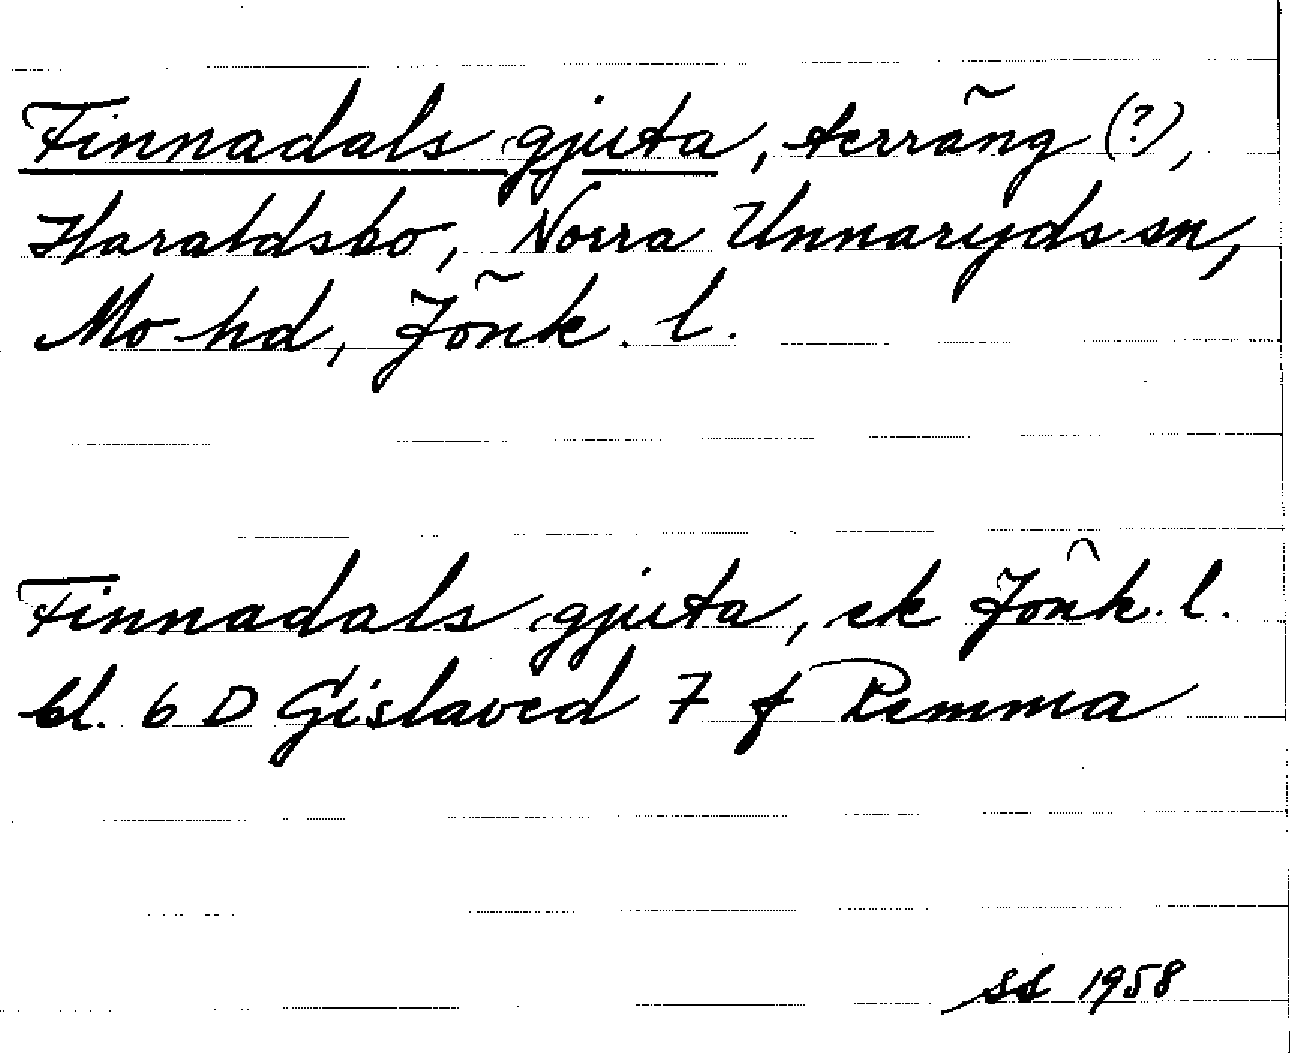 Finnadals gjuta, terräng (?),
Haraldsbo, Norra Unnaryds sn,
Mo hd, Jönk. l.
Finnadals gjuta, ek Jönk. l.
bl. 6 D Gislaved 7 f Remma
SS 1958